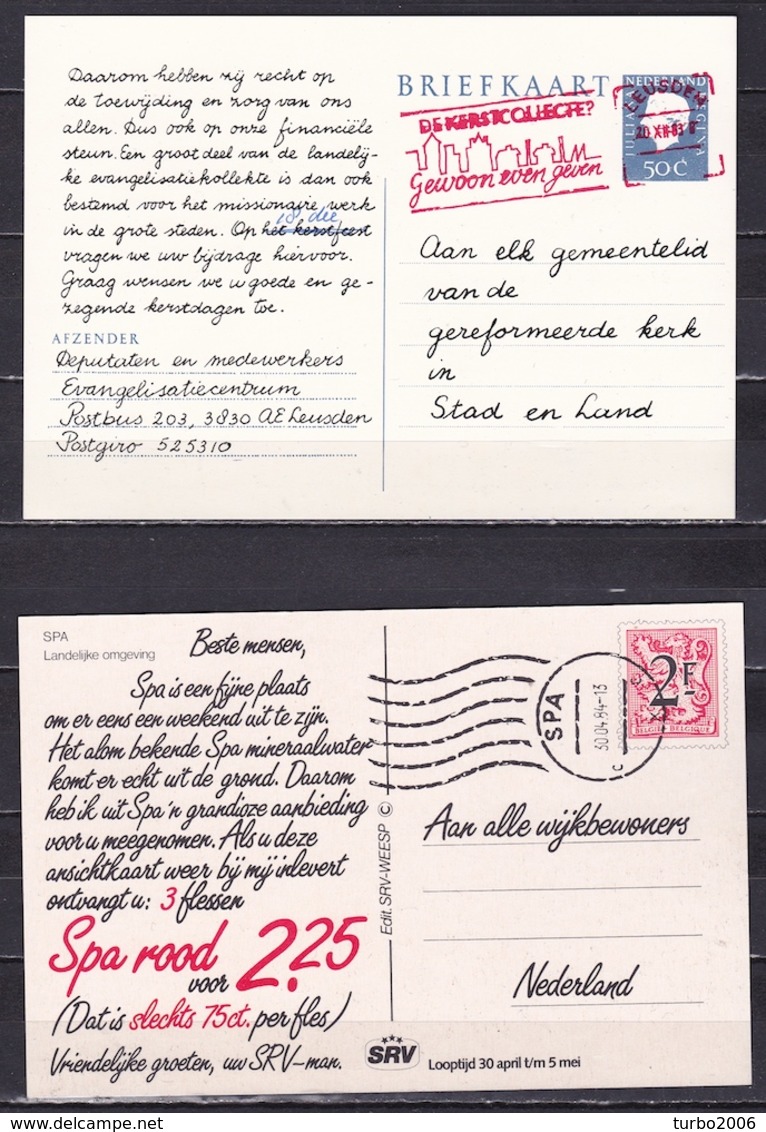 Daarom hebben zij recht op
de toewijding en zorg van ons
allen. Dus ook op onze financiële
steun. Een groot deel van de landelij-
ke evangelisatiekollekte is dan ook
bestemd voor het missionaire werk
in de grote steden. Op het kerstfeest
vragen we uw bijdrage hiervoor.
Graag wensen we u goede en ge-
zegende kerstdagen toe.
AFZENDER
Deputaten en medewerkers
Evangelisatiecentrum
Postbus 203, 3830 AE Leusden
Postgiro 525310
BRIEFKAART
DE KERSTCOLLECTE?
Gewoon even geven
NEDERLAND
JULIANA REGINA
50 C
LEUSDEN
20 XII 83
Aan elk gemeentelid
van de
gereformeerde kerk
in
Stad en Land
SPA
Landelijke omgeving
Beste mensen,
Spa is een fijne plaats
om er eens een weekend uit te zijn.
Het alom bekende Spa mineraalwater
komt er echt uit de grond. Daarom
heb ik uit Spa 'n grandioze aanbieding
voor u meegenomen. Als u deze
ansichtkaart weer bij mij inlevert
ontvangt u: 3 flessen
Spa rood
voor 2.25
(Dat is slechts 75ct. per fles)
Vriendelijke groeten, uw SRV-man.
Edit. SRV-WEESP ©
SRV
SPA
30.04.84-13
C
2F
BELGIË-BELGIQUE
Aan alle wijkbewoners
Nederland
Looptijd 30 april t/m 5 mei
delcampe.net
turbo2006